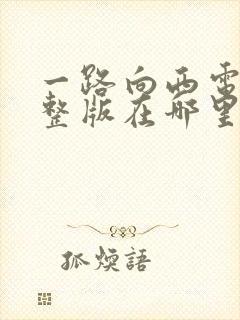 一路向西電
整版在哪里
孤煙語